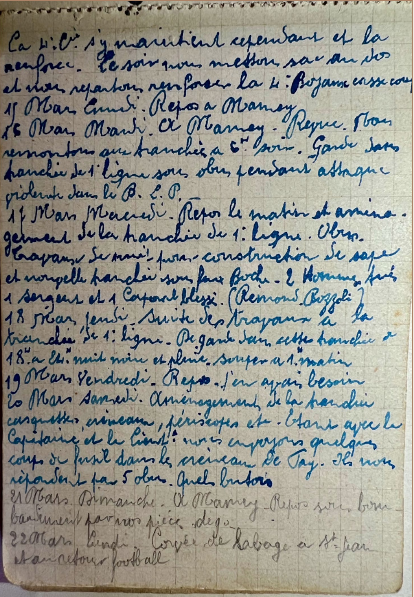 La 4e Cie s'y maintient cependant et la
renforce. Le soir nous mettons sac au dos
et nous repartons renforcer la 4e Boyaux casse cou
15 Mars Lundi. Repos à Mamey
16 Mars Mardi. A Mamey. Repos. Nous
remontons aux tranchées à 6h soir. Garde dans
tranchée de 1e ligne sous obus pendant attaque
violente dans le B. L. P.
17 Mars Mercredi. Repos le matin et aména-
gement de la tranchée de 1e ligne. Obus.
Travaux de nuit pour construction de sape
et nouvelle tranchée sous feux Boche. 2 Hommes tués
1 sergent et 1 Caporal blessés. (Remond Bozzoli)
18 Mars, jeudi. Suite des travaux à la
tranchée de 1e ligne. De garde dans cette tranchée de
18h à 24h nuit noire et pluie. Souper à 1h matin
19 Mars Vendredi. Repos. J'en avais besoin
20 Mars Samedi. Aménagement de la tranchée
casquettes créneaux, périscopes etc. Etant avec le
Capitaine et le Lieut nous envoyons quelques
coups de fusil dans les créneaux de Fay. Ils nous
répondent par 5 obus. Quel butors
21 Mars. Dimanche. A Mamey. Repos sous bom-
bardement par nos pièces de 90
22 Mars Lundi. Corvée de lavage à St Jean
et au retour football